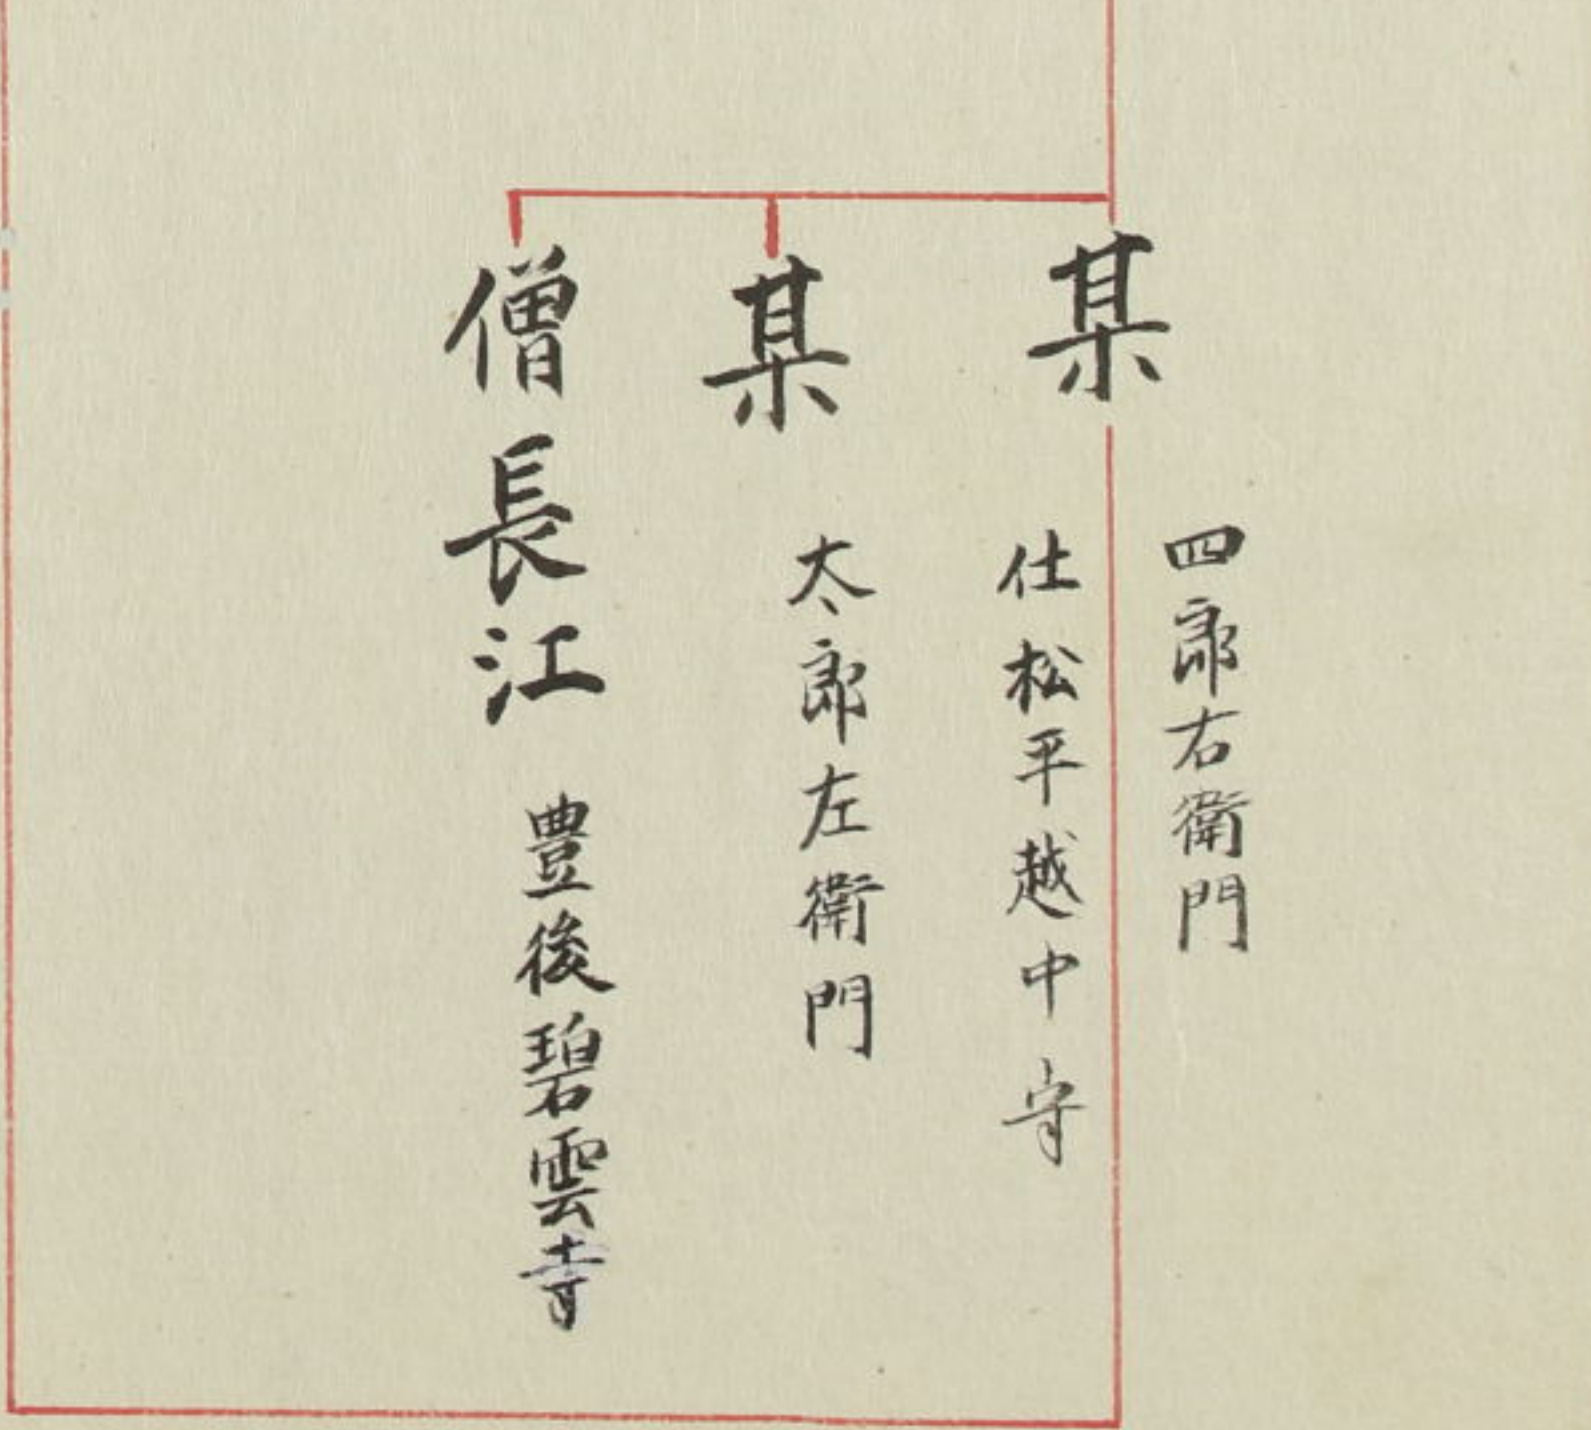 某
四郎右衛門
仕松平越中守
某
太郎左衛門
僧長江
豊後碧雲寺